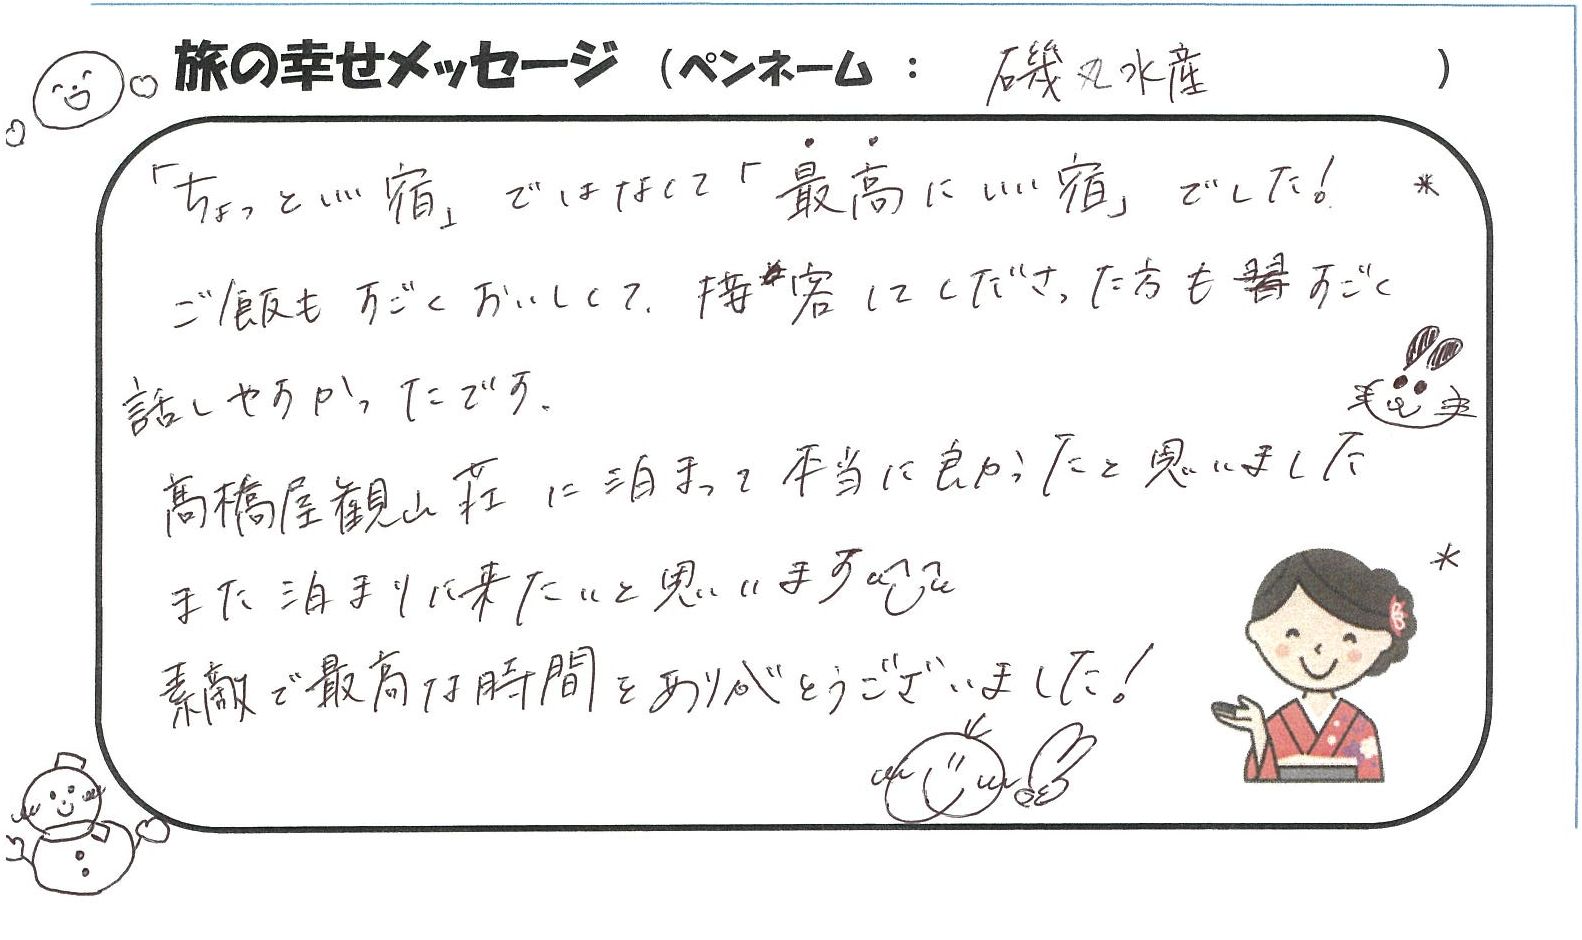 旅の幸せメッセージ（ペンネーム：磯丸水産）
「ちょっといい宿」ではなくて「最高にいい宿」でした！
ご飯もすごくおいしくて、接客してくださった方もすごく
話しやすかったです。
髙橋屋観山荘に泊まって本当に良かったと思いました
また泊まりに来たいと思います
素敵で最高な時間をありがとうございました！